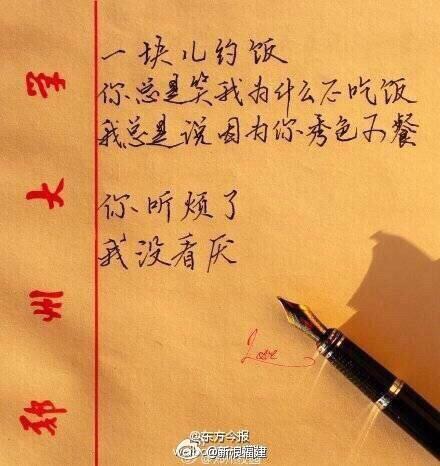 一块儿约饭
你总是笑我为什么不吃饭
我总是说因为你秀色可餐
你听烦了
我没看厌
Love
郑州大学
@东方今报
@新浪福建